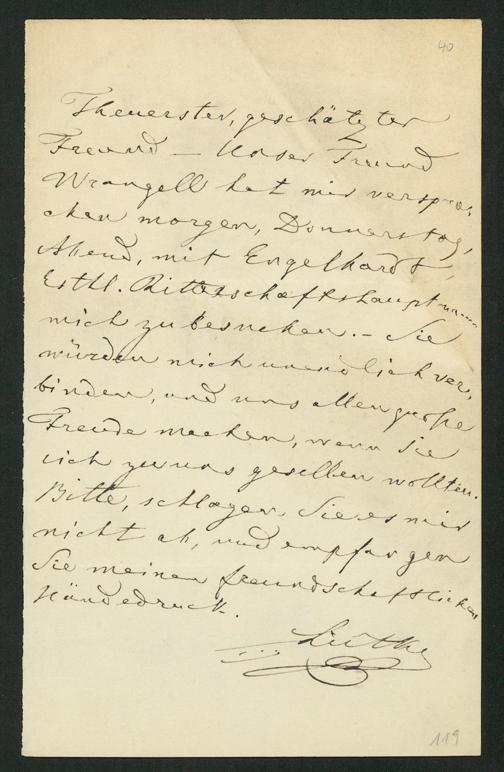 40
Theuerster, geschätzter
Freund — Unser Freund
Wrangell hat mir verspro-
chen morgen, Donnerstag,
Abend, mit Engelhardt,
Esthl. Ritterschaftshauptmann
mich zu besuchen. — Sie
würden mich unendlich ver-
binden, und uns allen große
Freude machen, wenn Sie
sich zu uns gesellen wollten.
Bitte, schlagen Sie es mir
nicht ab, und empfangen
Sie meinen freundschaftlichen
Händedruck.
Lütke
119